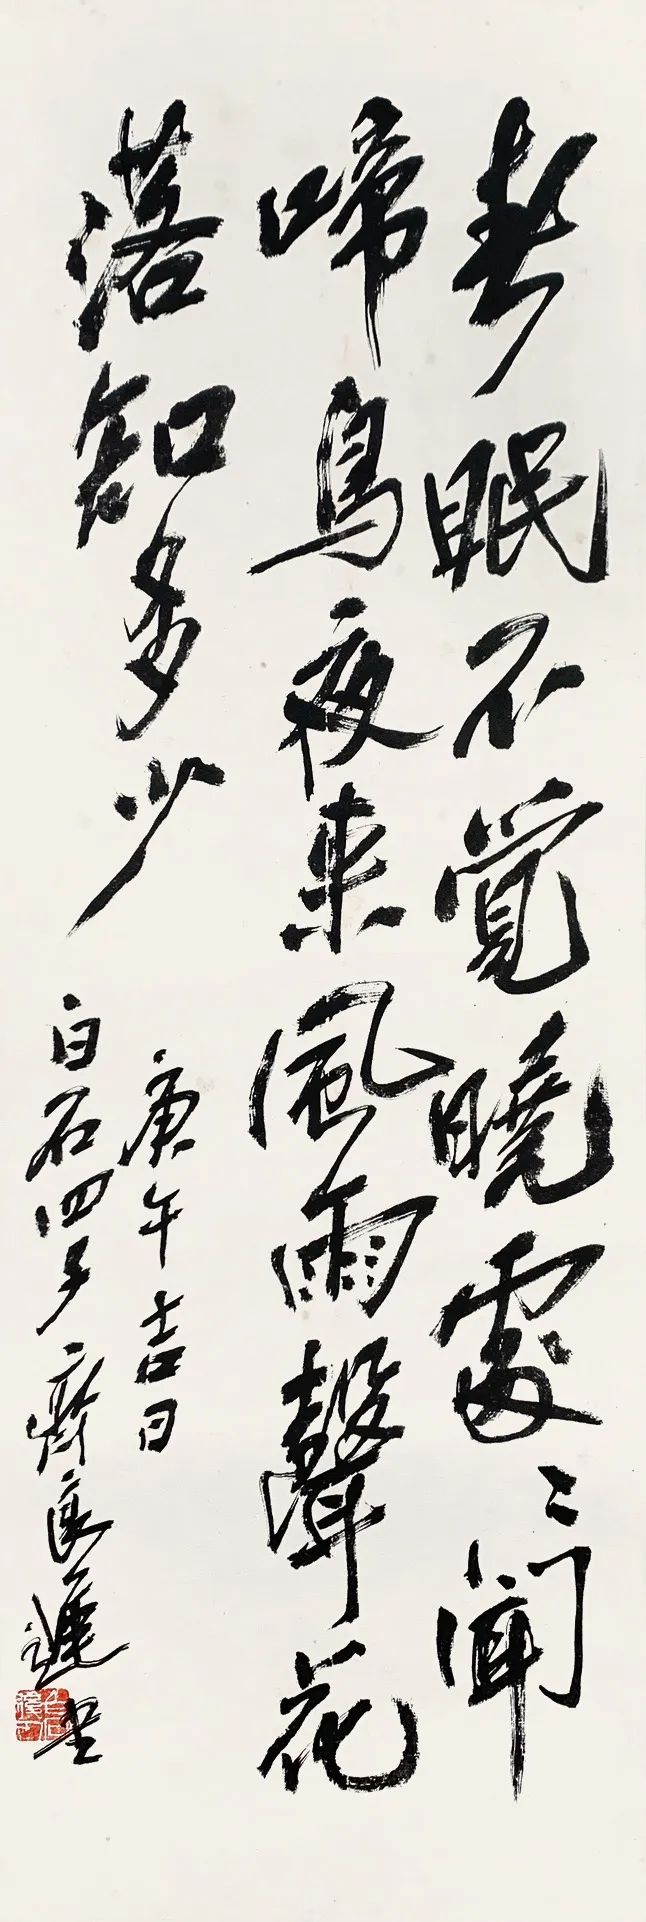 春眠不覺曉處〻聞
啼鳥夜來風雨聲花
落知多少
庚午吉日
白石四子齊良遲書